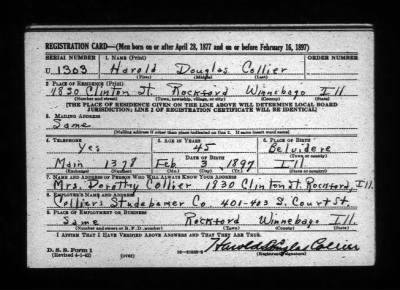 REGISTRATION CARD—(Men born on or after April 28, 1877 and on or before February 16, 1897)
SERIAL NUMBER 1. NAME (Print) ORDER NUMBER
U 1303 Harold Douglas Collier
(First) (Middle) (Last)
2. PLACE OF RESIDENCE (Print)
1830 Clinton St. Rockford Winnebago Ill
(Number and street) (Town, township, village, or city) (County) (State)
[THE PLACE OF RESIDENCE GIVEN ON THE LINE ABOVE WILL DETERMINE LOCAL BOARD
JURISDICTION; LINE 2 OF REGISTRATION CERTIFICATE WILL BE IDENTICAL]
3. MAILING ADDRESS
Same
[Mailing address if other than place indicated on line 2. If same insert word same]
4. TELEPHONE 5. AGE IN YEARS 6. PLACE OF BIRTH
Yes 45 Belvidere
DATE OF BIRTH (Town or county)
Main 1378 Feb 3 1897 Ill
(Exchange) (Number) (Mo.) (Day) (Yr.) (State or country)
7. NAME AND ADDRESS OF PERSON WHO WILL ALWAYS KNOW YOUR ADDRESS
Mrs. Dorothy Collier 1830 Clinton St. Rockford, Ill.
8. EMPLOYER'S NAME AND ADDRESS
Colliers Studebaker Co. 401-403 S. Court St.
9. PLACE OF EMPLOYMENT OR BUSINESS
Same Rockford Winnebago Ill.
(Number and street or R. F. D. number) (Town) (County) (State)
I AFFIRM THAT I HAVE VERIFIED ABOVE ANSWERS AND THAT THEY ARE TRUE.
D. S. S. Form 1
(Revised 4-1-42) (over) Harold Douglas Collier
(Registrant's signature)